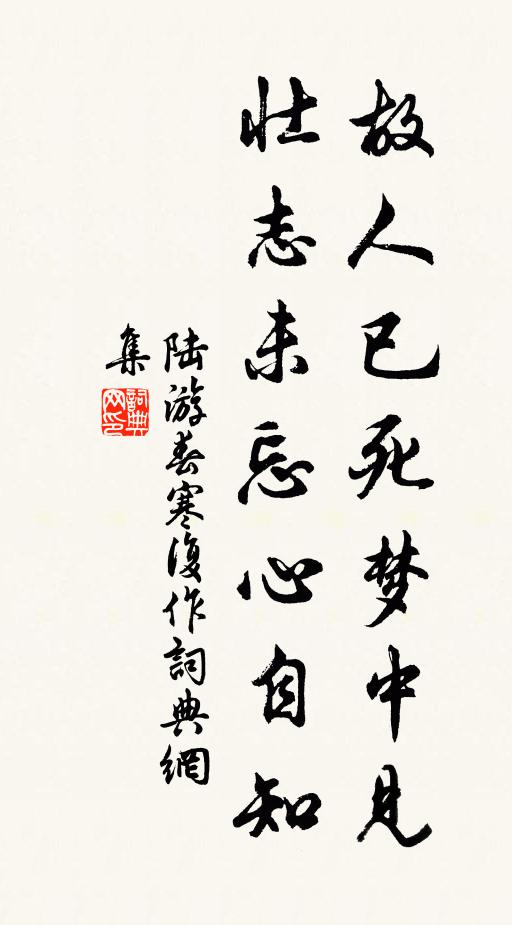 故人已死梦中见
壮志未忘心自知
陆游春寒復作詞典網
集
詞典
网印